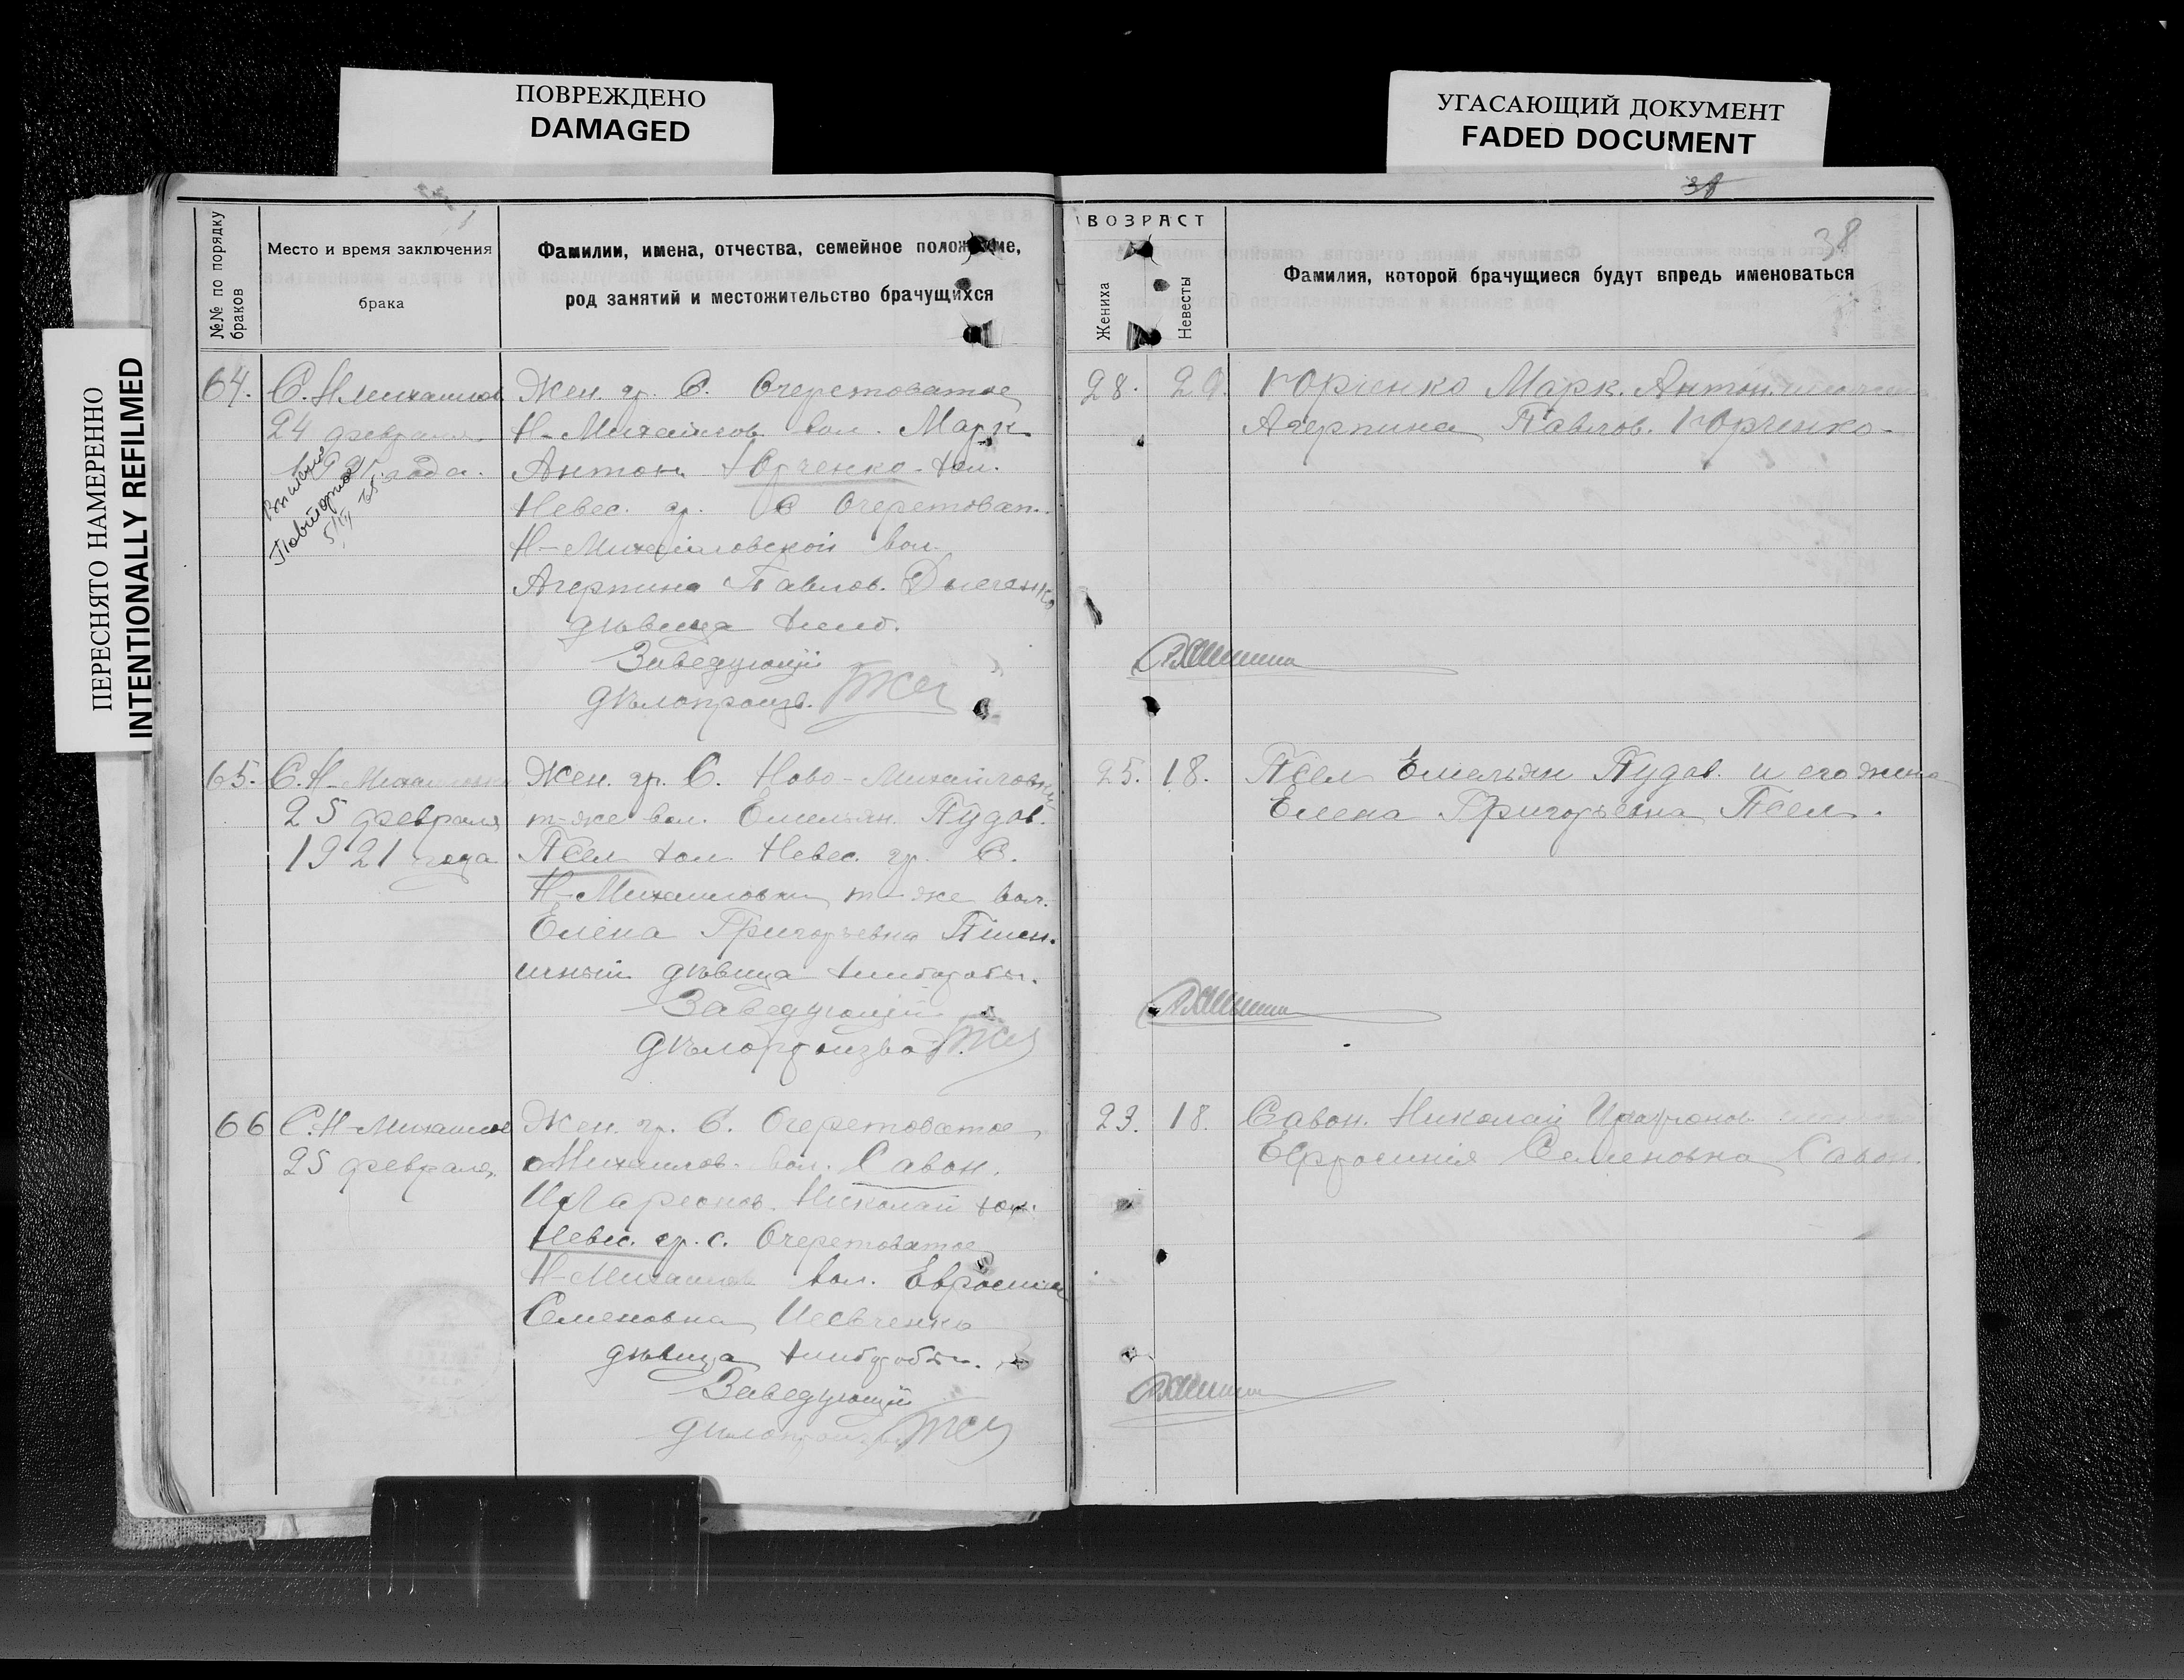 ПОВРЕЖДЕНО
DAMAGED
УГАСАЮЩИЙ ДОКУМЕНТ
FADED DOCUMENT
ПЕРЕСНЯТО НАМЕРЕННО
INTENTIONALLY REFILMED
38
38
№№ по порядку браков
Место и время заключения
брака
Фамилии, имена, отчества, семейное положение,
род занятий и местожительство брачущихся
ВОЗРАСТ
Жениха
Невесты
Фамилия, которой брачущиеся будут впредь именоваться
64.
С. Н Михаилов
24 февраля
1921 года.
Повторно
Жен. гр. С. Очеретоватое
Н-Михайлов вол. Марк
Антон. Юрченко хол.
Невес. гр. С Очеретоват.
Н-Михайловской вол.
Агерпина Павлов.
дѣвица
Заведующій
дѣлопроизв.
28. 20.
Юрченко Марк. Антон.
Агерпина Павлов. Юрченко.
65.
С. Н-Михаиловка
25 февраля
1921 года
Жен. гр. С. Ново-Михайловки
т-же вол. Емельян. Пудов.
Псел хол. Невес. гр. С.
Н-Михаиловки т-же вол.
Елена Григорьевна Пшен.
ичный дѣвица хлебороб.
Заведующій
дѣлопроизвод.
25. 18.
Псел Емельян Пудов. и его жена
Елена Григорьевна Псел.
66
С. Н-Михаилов
25 февраля
Жен. гр. С. Очеретоватое
Михаилов. вол. Савон.
Иларионов. Николай хол.
Невес. гр. с. Очеретоватое
Н-Михаилов вол. Евросиния
Семеновна
дѣвица хлебороб.
Заведующій
дѣлопроизв.
23. 18.
Савон. Николай
Ефросиния Семеновна Савон.